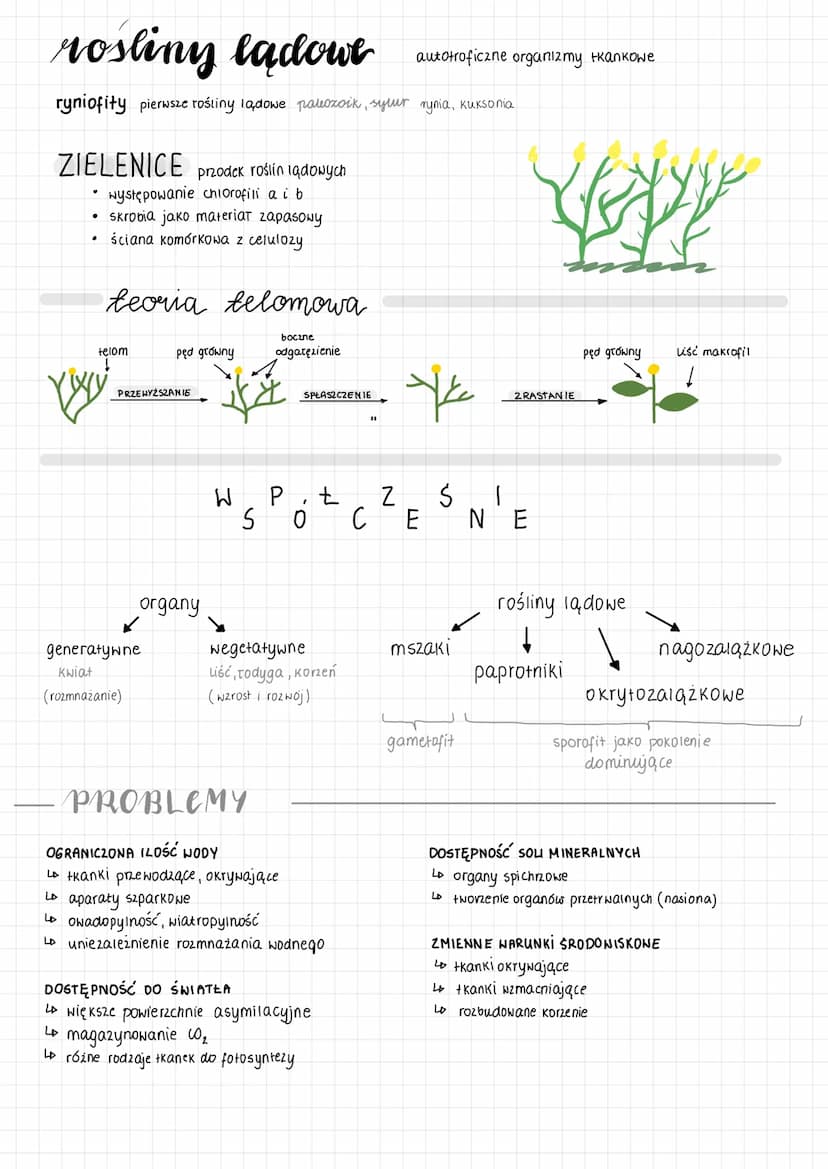 rośliny lądowe
autotroficzne organizmy tkankowe
ryniofity pierwsze rośliny lądowe paleozoik, sylur rynia, kuksonia
ZIELENICE przodek roślin lądowych
• występowanie chlorofili a i b
• skrobia jako materiał zapasowy
• ściana komórkowa z celulozy
teoria telomowa
telom
pęd główny
boczne
odgałęzienie
pęd główny
liść makrofil
PRZEWYŻSZANIE
SPŁASZCZENIE
ZRASTANIE
"
WSPÓŁCZEŚNIE
organy
generatywne
kwiat
(rozmnażanie)
wegetatywne
liść, łodyga, korzeń
(wzrost i rozwój)
rośliny lądowe
mszaki
paprotniki
okrytozalążkowe
nagozalążkowe
gametofit
sporofit jako pokolenie
dominujące
PROBLEMY
OGRANICZONA ILOŚĆ WODY
↳ tkanki przewodzące, okrywające
↳ aparaty szparkowe
↳ owadopylność, wiatropylność
↳ uniezależnienie rozmnażania wodnego
DOSTĘPNOŚĆ DO ŚWIATŁA
↳ większe powierzchnie asymilacyjne
↳ magazynowanie CO₂
↳ różne rodzaje tkanek do fotosyntezy
DOSTĘPNOŚĆ SOLI MINERALNYCH
↳ organy spichrzowe
↳ tworzenie organów przetrwalnych (nasiona)
ZMIENNE WARUNKI ŚRODOWISKOWE
↳ tkanki okrywające
↳ tkanki wzmacniające
↳ rozbudowane korzenie